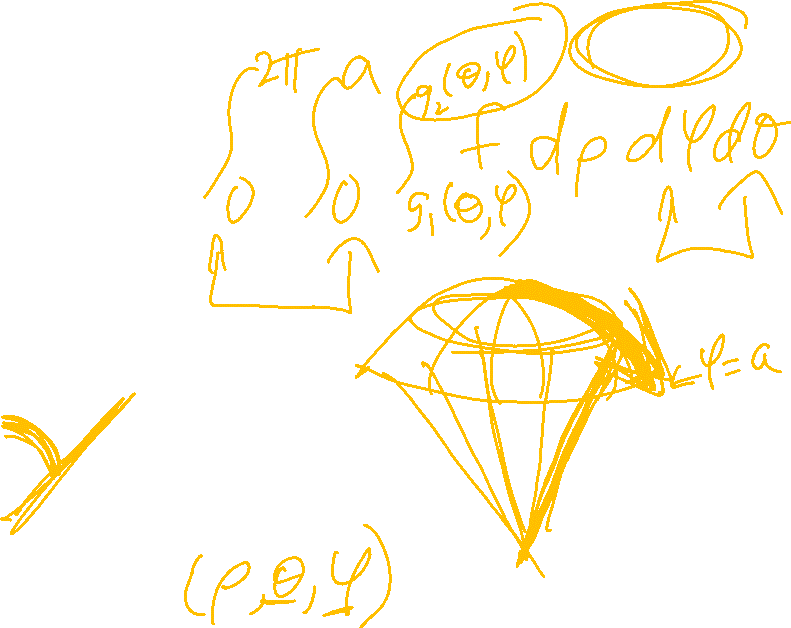 ∫₀^2π ∫₀^a ∫_g₁(θ,φ)^g₂(θ,φ) f dρ dφ dθ
φ = a
(ρ, θ, φ)